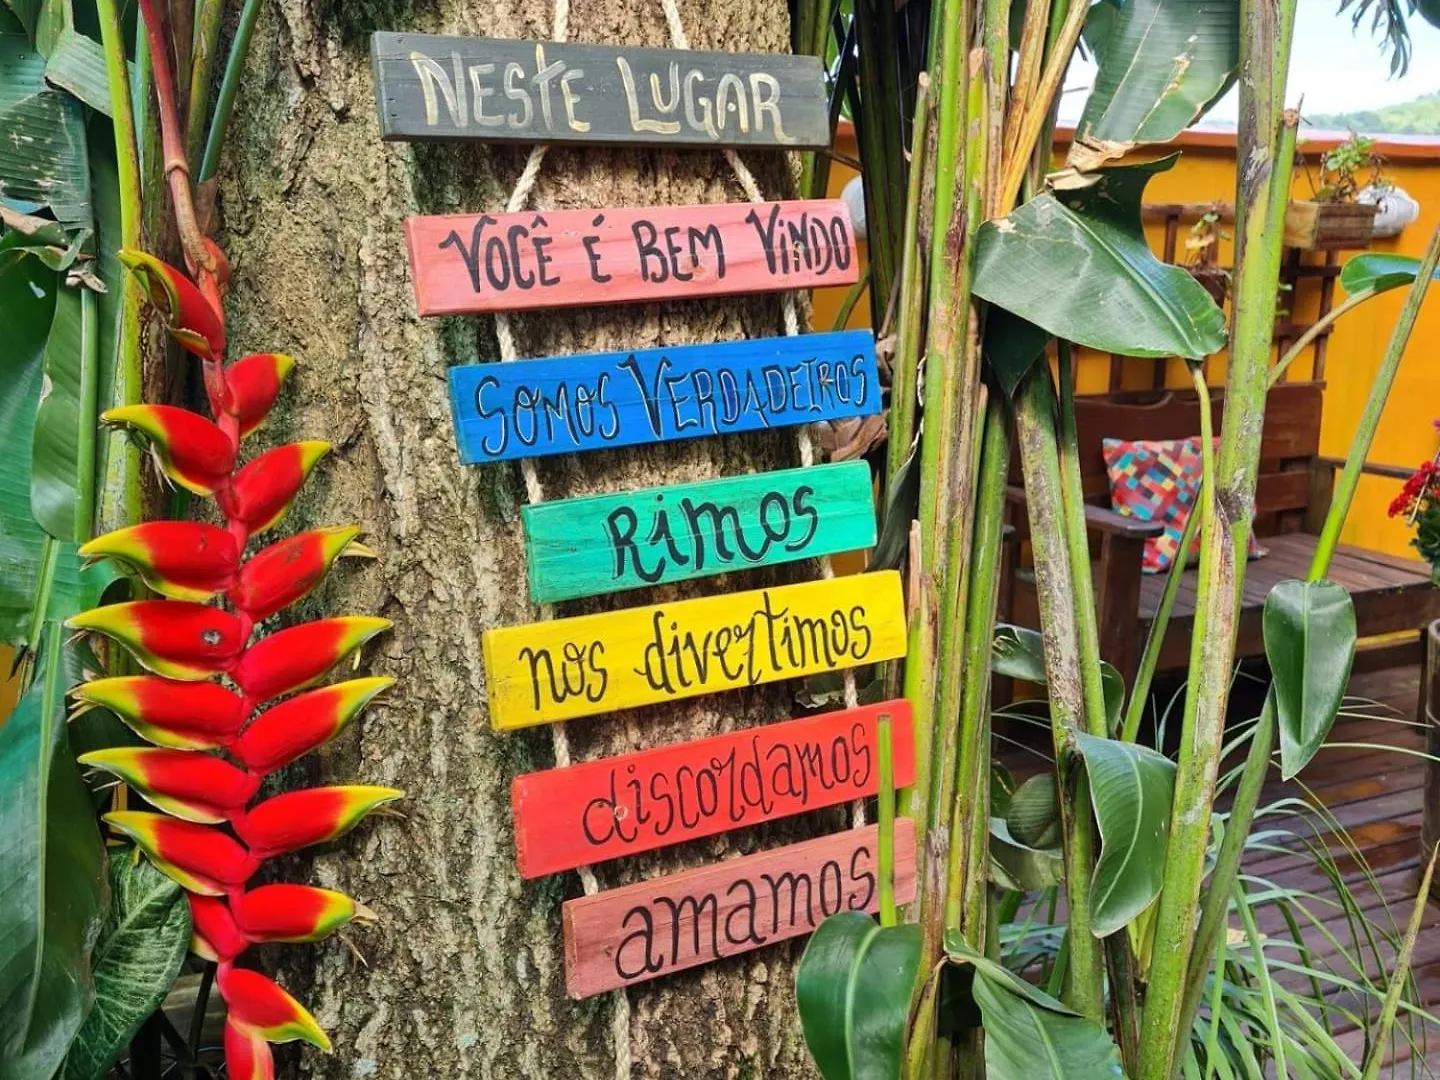 NESTE LUGAR
VOCÊ É BEM VINDO
SOMOS VERDADEIROS
Rimos
nos divertimos
discordamos
amamos